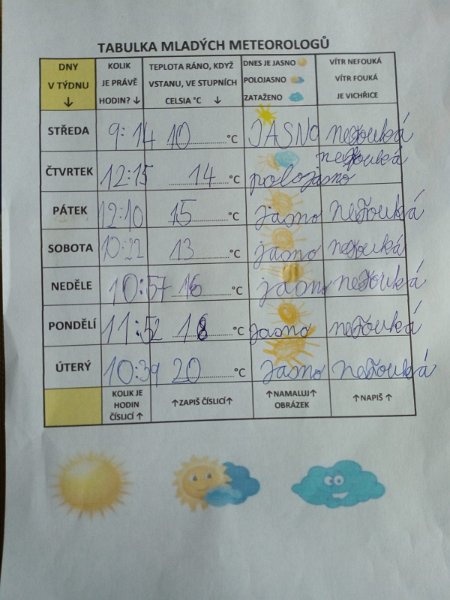 TABULKA MLADÝCH METEOROLOGŮ
DNY V TÝDNU ↓ KOLIK JE PRÁVĚ HODIN? ↓ TEPLOTA RÁNO, KDYŽ VSTANU, VE STUPNÍCH CELSIA °C ↓ DNES JE JASNO POLOJASNO ZATAŽENO VÍTR NEFOUKÁ VÍTR FOUKÁ JE VICHŘICE
STŘEDA 9:14 10 °C JASNO nefouká
ČTVRTEK 12:15 14 °C polojasno nefouká
PÁTEK 12:10 15 °C jasno nefouká
SOBOTA 10:22 13 °C jasno nefouká
NEDĚLE 10:57 16 °C jasno nefouká
PONDĚLÍ 11:52 18 °C jasno nefouká
ÚTERÝ 10:39 20 °C jasno nefouká
KOLIK JE HODIN ČÍSLICÍ ↑ ↑ZAPIŠ ČÍSLICÍ↑ ↑NAMALUJ↑ OBRÁZEK ↑NAPIŠ ↑